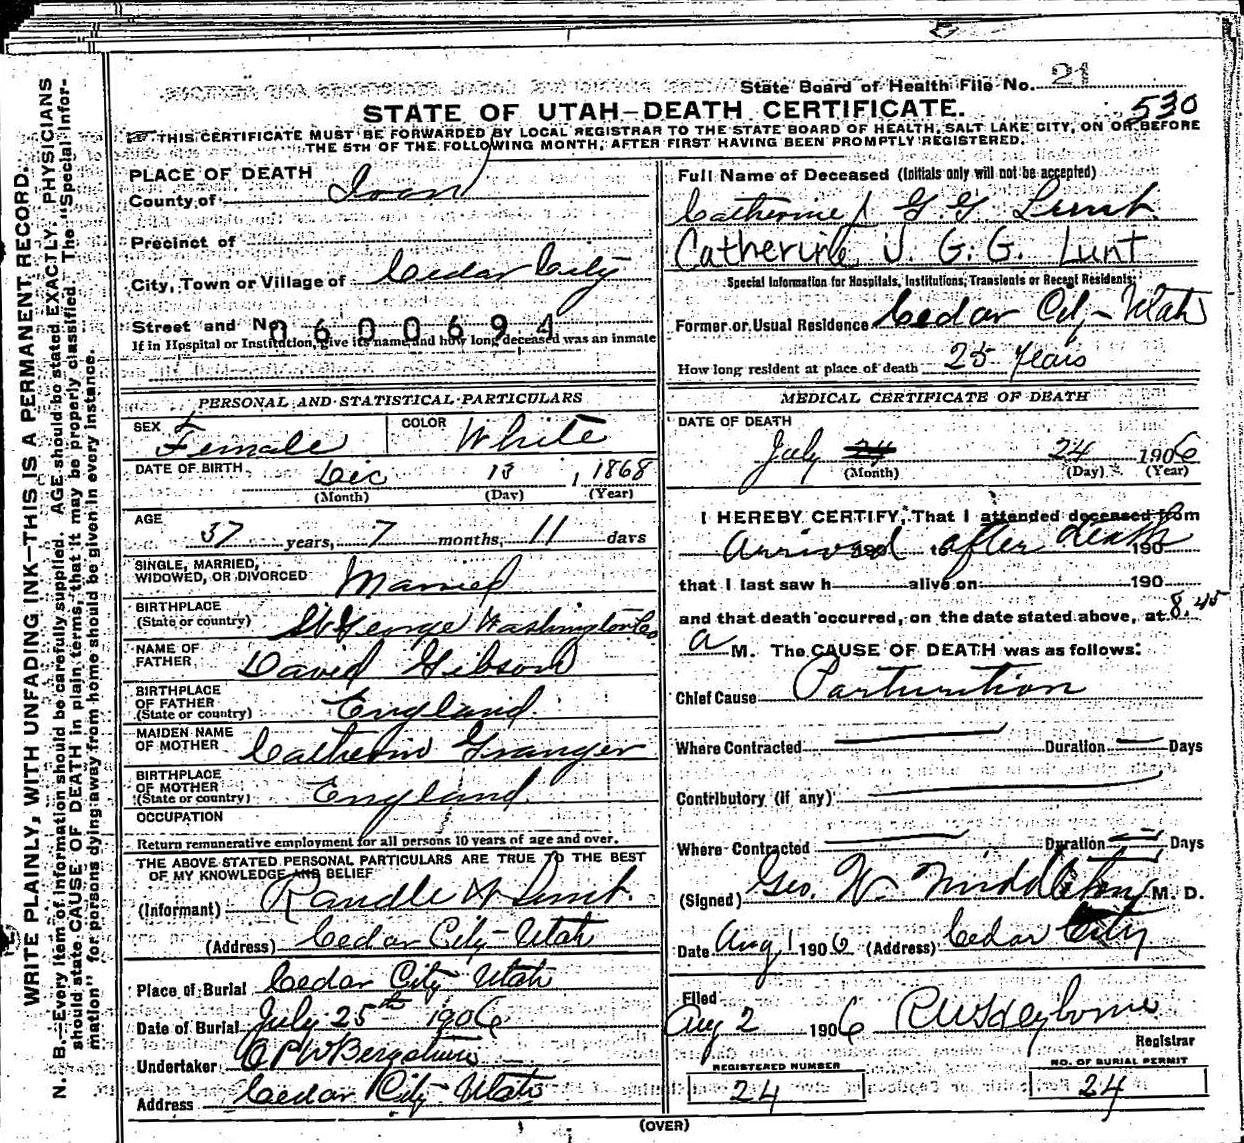 State Board of Health File No. 21
530
STATE OF UTAH—DEATH CERTIFICATE.
THIS CERTIFICATE MUST BE FORWARDED BY LOCAL REGISTRAR TO THE STATE BOARD OF HEALTH, SALT LAKE CITY, ON OR BEFORE
THE 5TH OF THE FOLLOWING MONTH, AFTER FIRST HAVING BEEN PROMPTLY REGISTERED.
WRITE PLAINLY, WITH UNFADING INK—THIS IS A PERMANENT RECORD.
N. B.—Every item of information should be carefully supplied. AGE should be stated EXACTLY. PHYSICIANS
should state CAUSE OF DEATH in plain terms, that it may be properly classified. The "Special Infor-
mation" for persons dying away from home should be given in every instance.
PLACE OF DEATH
County of Iron
Precinct of
City, Town or Village of Cedar City
Street and No. 0600694
If in Hospital or Institution, give its name and how long deceased was an inmate
PERSONAL AND STATISTICAL PARTICULARS
SEX Female COLOR White
DATE OF BIRTH Dec 13, 1868
(Month) (Day) (Year)
AGE 37 years, 7 months, 11 days
SINGLE, MARRIED,
WIDOWED, OR DIVORCED Married
BIRTHPLACE
(State or country) St George Washington Co
NAME OF
FATHER David Gibson
BIRTHPLACE
OF FATHER
(State or country) England
MAIDEN NAME
OF MOTHER Catherin Granger
BIRTHPLACE
OF MOTHER
(State or country) England
OCCUPATION
Return remunerative employment for all persons 10 years of age and over.
THE ABOVE STATED PERSONAL PARTICULARS ARE TRUE TO THE BEST
OF MY KNOWLEDGE AND BELIEF
(Informant) Randle W Lunt.
(Address) Cedar City Utah
Place of Burial Cedar City Utah
Date of Burial July 25th 1906
Undertaker
Address Cedar City Utah
Full Name of Deceased (Initials only will not be accepted)
Catherine J G. G. Lunt
Catherine J. G. G. Lunt
Special Information for Hospitals, Institutions, Transients or Recent Residents:
Former or Usual Residence Cedar City Utah
How long resident at place of death 25 Years
MEDICAL CERTIFICATE OF DEATH
DATE OF DEATH
July 24 24 1906
(Month) (Day) (Year)
I HEREBY CERTIFY, That I attended deceased from
Arrived 190 to after death 190
that I last saw h alive on 190
and that death occurred, on the date stated above, at 8.45
a M. The CAUSE OF DEATH was as follows:
Chief Cause Parturition
Where Contracted Duration Days
Contributory (if any)
Where Contracted Duration Days
(Signed) Geo. W. Middleton M. D.
Date Aug 1 1906 (Address) Cedar City
Filed
Aug 2 1906
Registrar
REGISTERED NUMBER
24
NO. OF BURIAL PERMIT
24
(OVER)